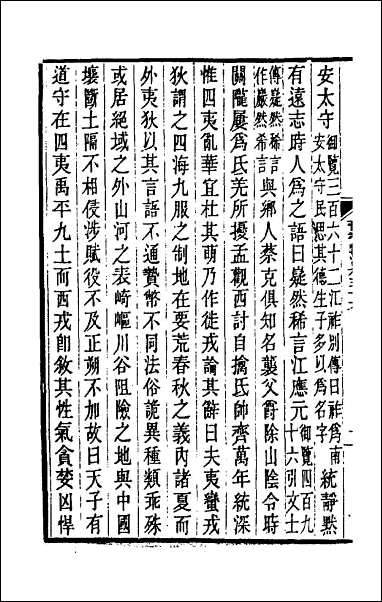 安太守御覽三百六十二江祚別傳曰祚爲南安太守民思其德生子多以爲名字統靜默
有遠志時人爲之語曰嶷然稀言江應元御覽四百九十六引文士
傳嶷然稀言作巖然希言與鄉人蔡克俱知名襲父爵除山陰令時
關隴屢爲氐羌所擾孟觀西討自擒氐帥齊萬年統深
惟四夷亂華宜杜其萌乃作徙戎論其辭曰夫夷蠻戎
狄謂之四海九服之制地在要荒春秋之義內諸夏而
外夷狄以其言語不通贄幣不同法俗詭異種類乖殊
或居絕域之外山河之表崎嶇川谷阻險之地與中國
壤斷土隔不相侵涉賦役不及正朔不加故曰天子有
道守在四夷禹平九土而西戎卽敘其性氣貪婪凶悍